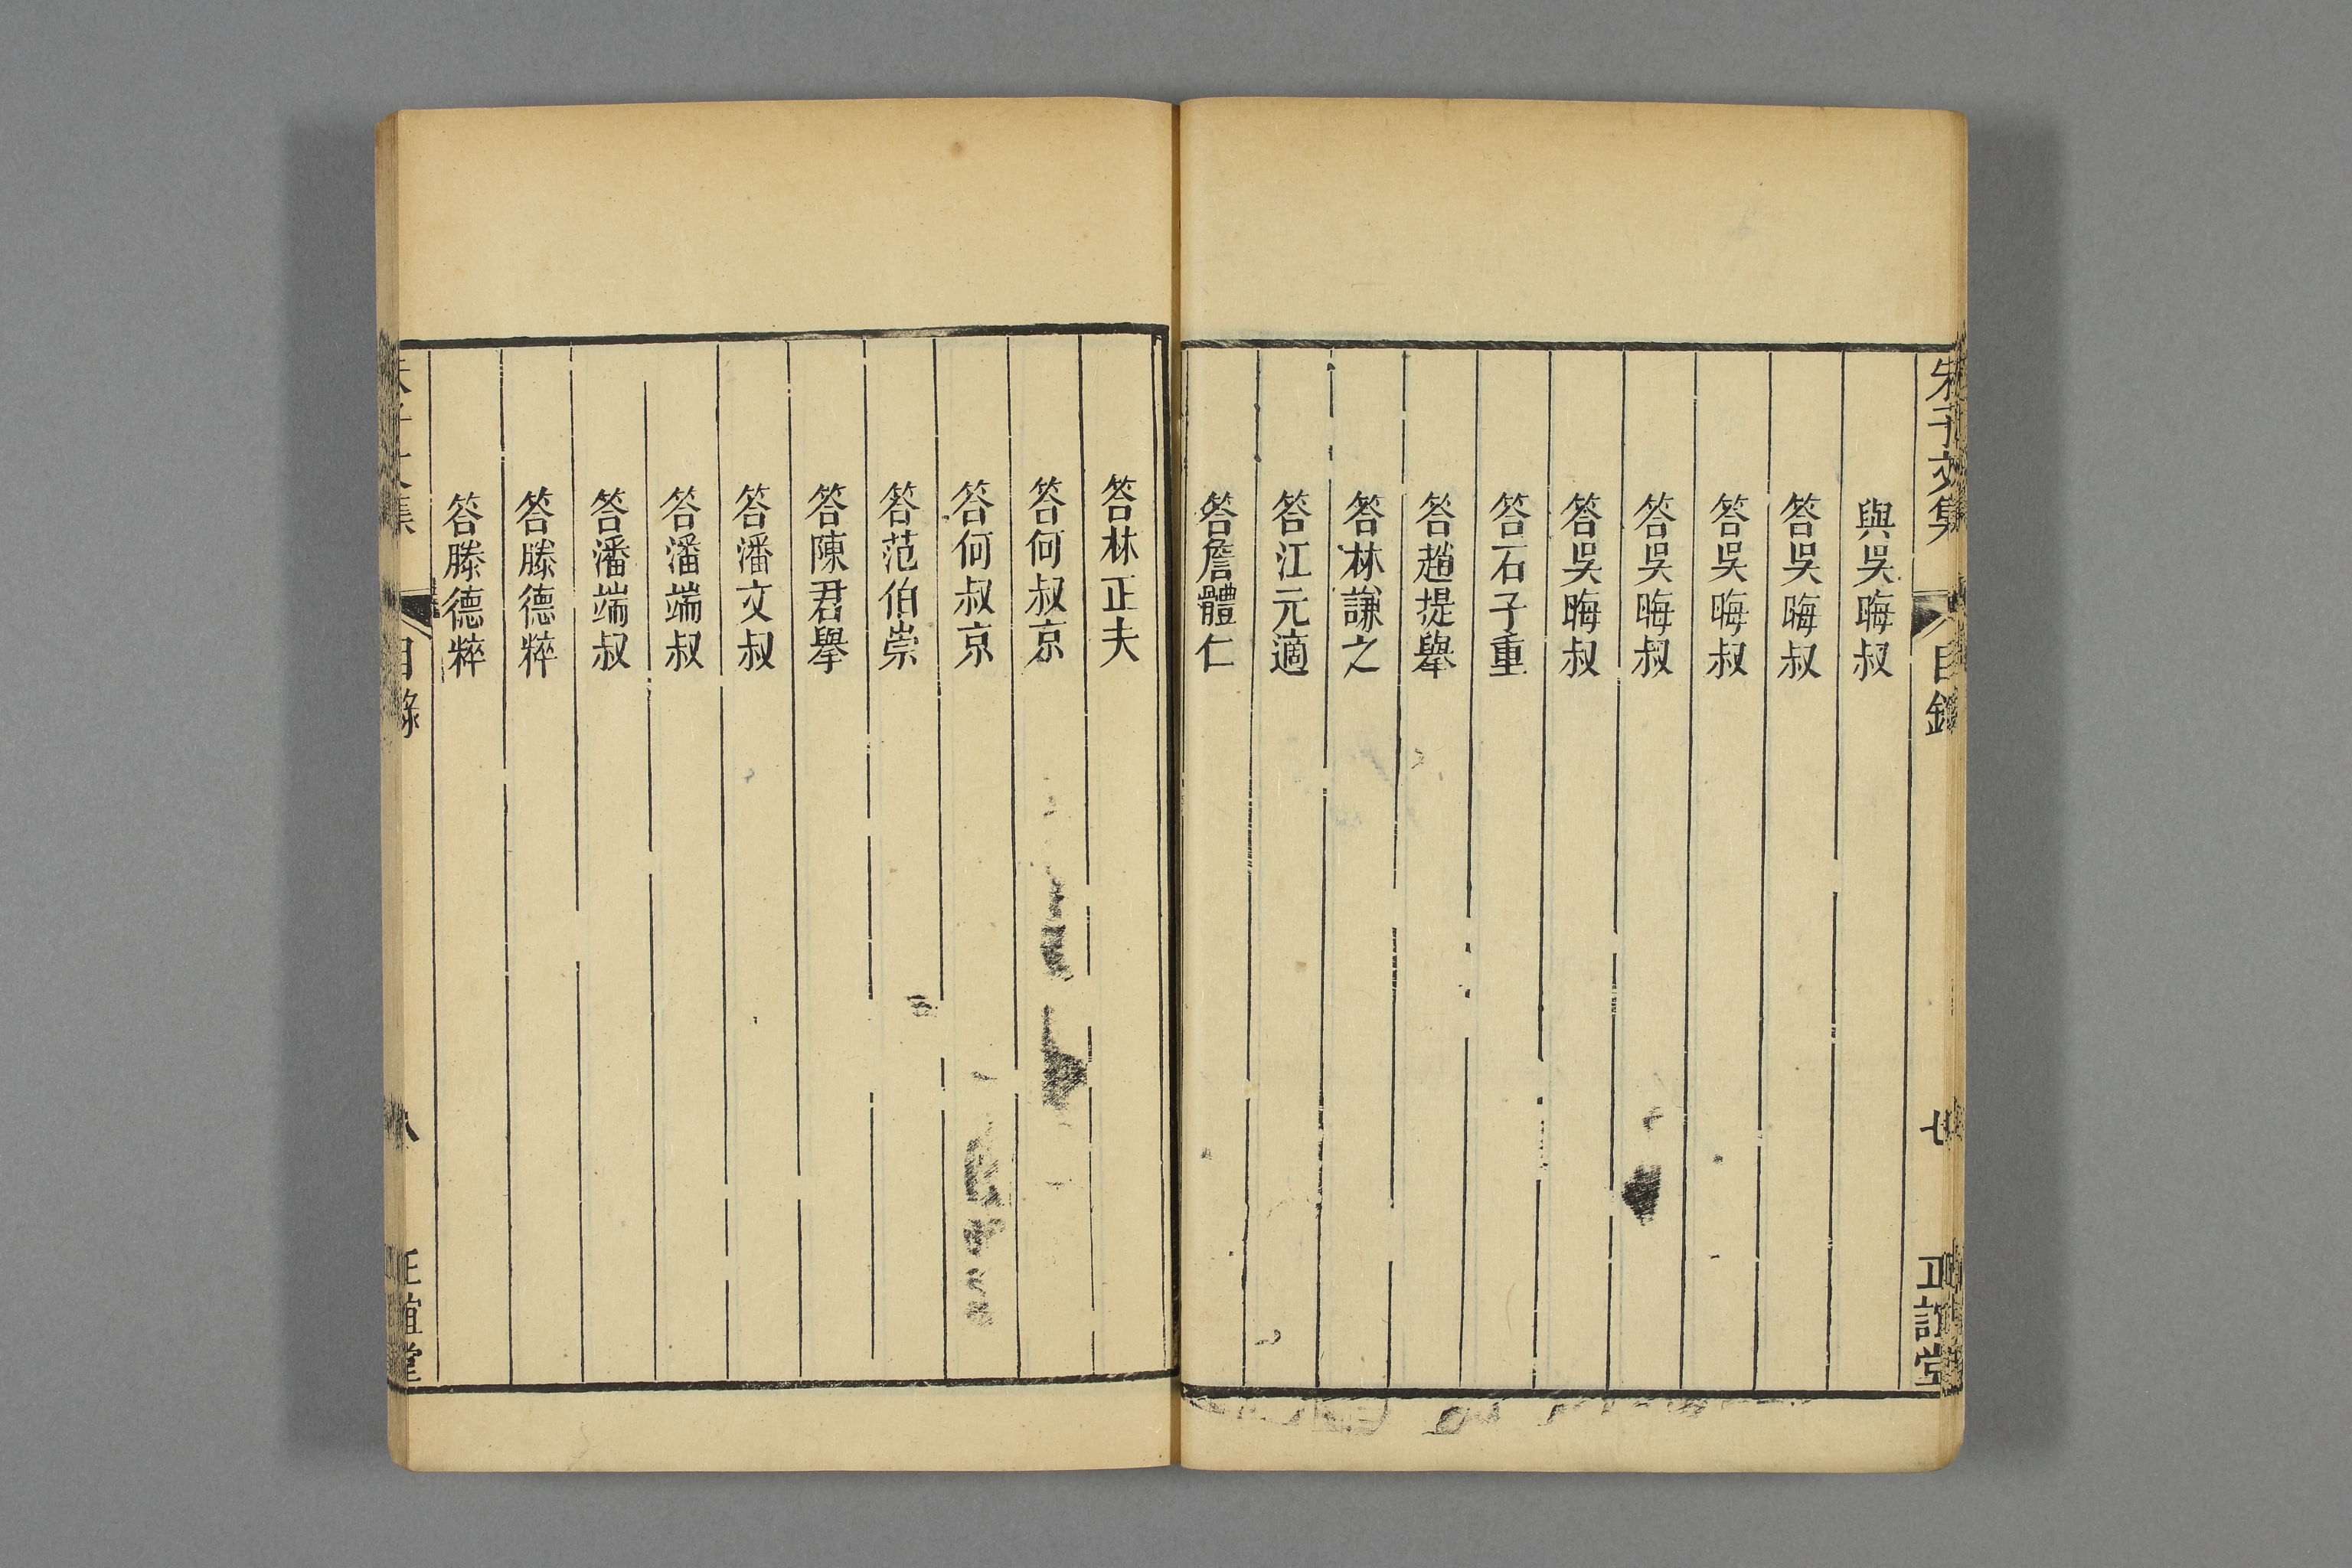 朱子文集
目錄
七
正誼堂
與吳晦叔
答吳晦叔
答吳晦叔
答吳晦叔
答吳晦叔
答石子重
答趙提舉
答林謙之
答江元適
答詹體仁
答林正夫
答何叔京
答何叔京
答范伯崇
答陳君舉
答潘文叔
答潘端叔
答潘端叔
答滕德粹
答滕德粹
朱子文集
目錄
八
正誼堂